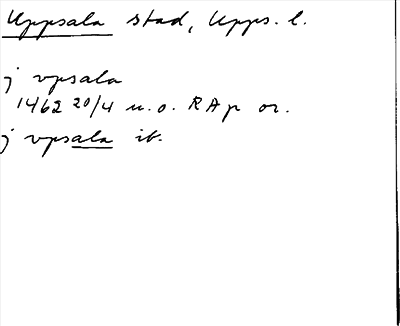 Uppsala stad, Upps. l.
j vpsala
1462 20/4 u.o. RAp or.
j vpsala ib.